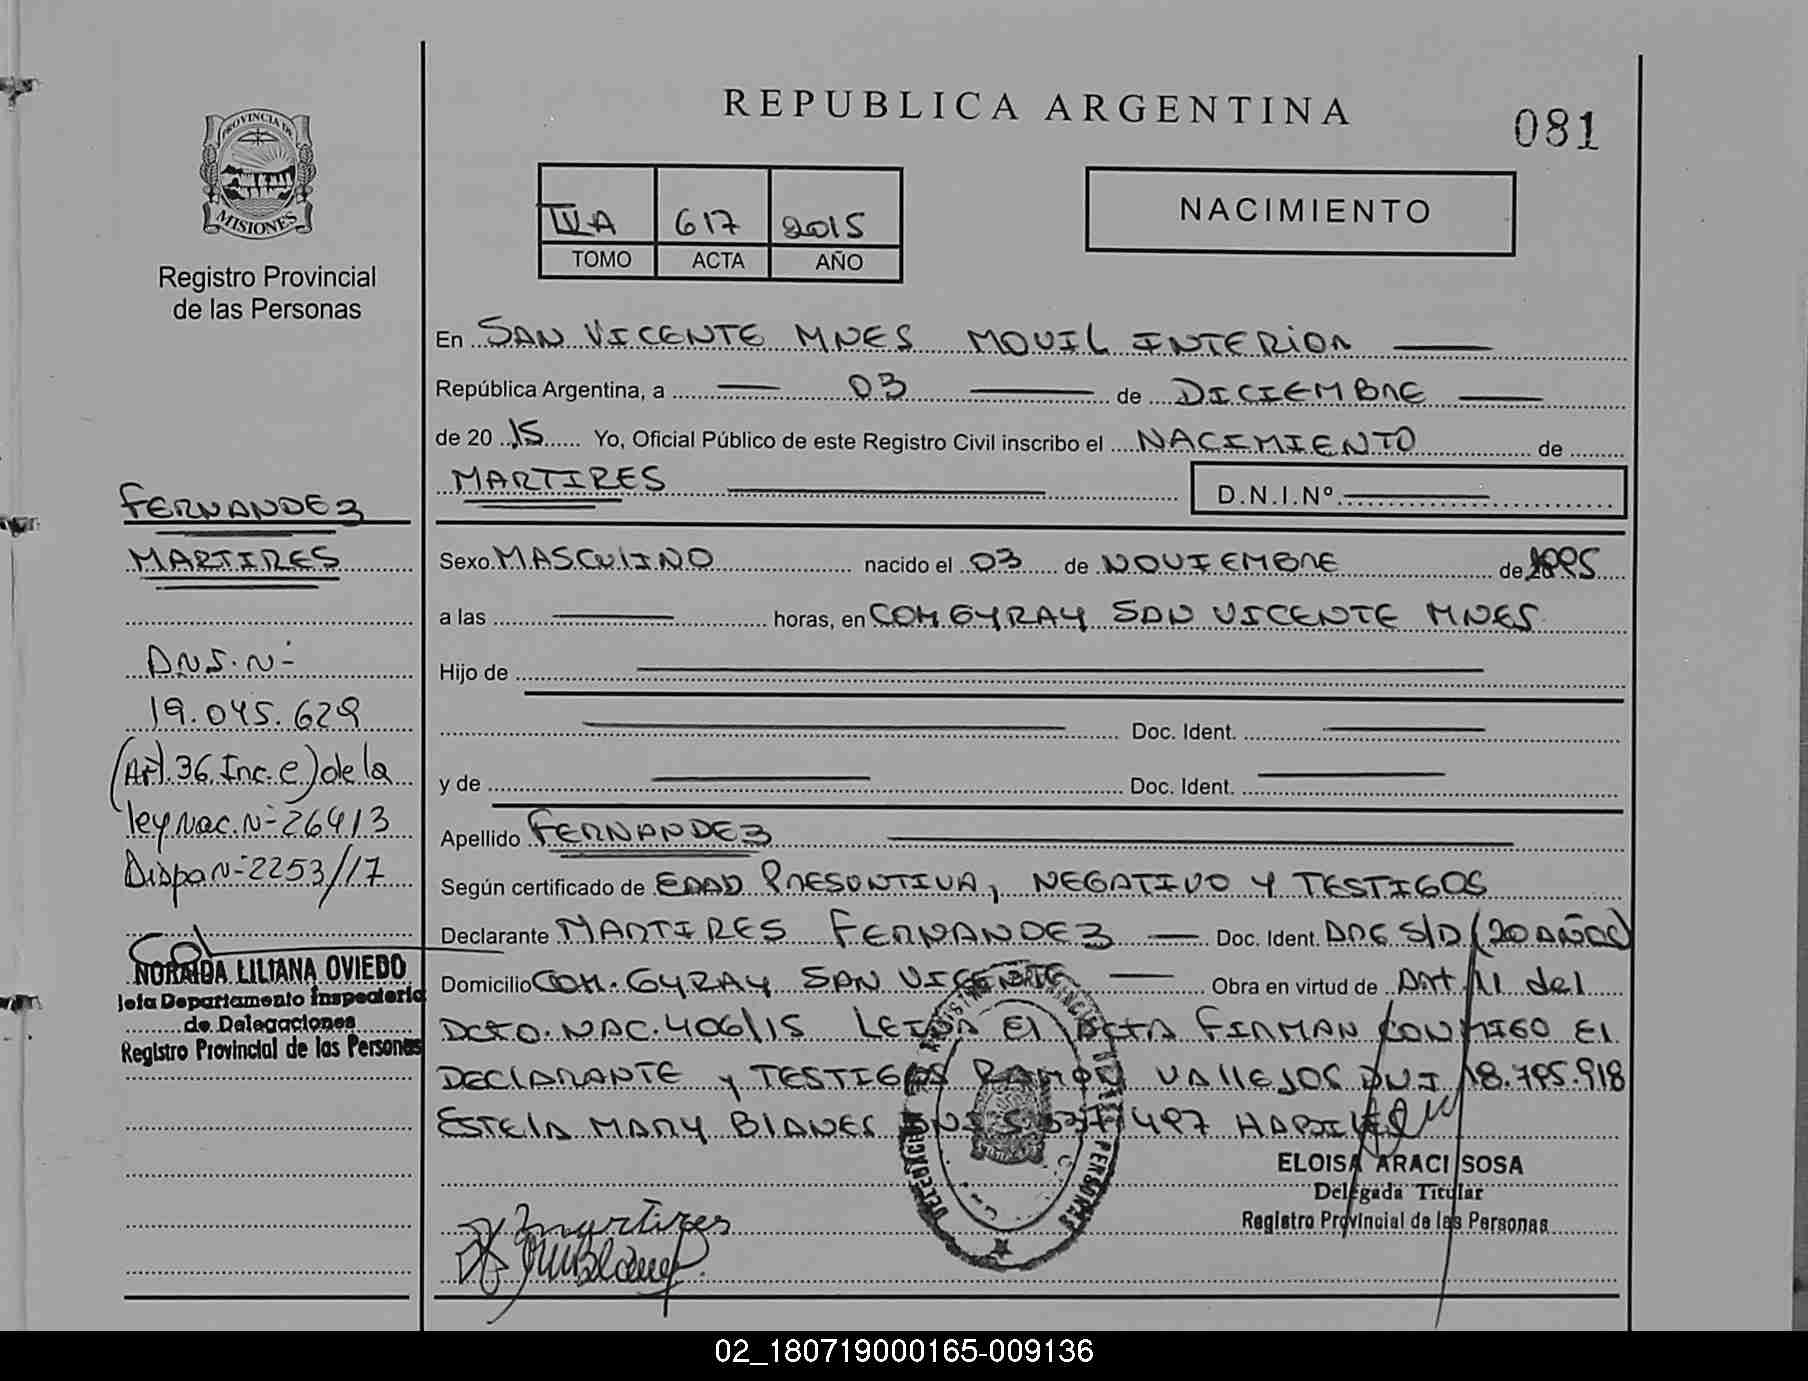 REPUBLICA ARGENTINA
081
PROVINCIA DE MISIONES
Registro Provincial
de las Personas
617 2015
TOMO ACTA AÑO
NACIMIENTO
En SAN VICENTE MNES MOVIL INTERIOR
República Argentina, a 03 de DICIEMBRE
de 20 15 Yo, Oficial Público de este Registro Civil inscribo el NACIMIENTO de
MARTIRES D.N.I.Nº
Sexo MASCULINO nacido el 03 de NOVIEMBRE de 1995
a las horas, en COM GYRAY SAN VICENTE MNES
Hijo de
Doc. Ident.
y de Doc. Ident.
Apellido FERNANDEZ
Según certificado de EDAD PRESUNTIVA, NEGATIVO Y TESTIGOS
Declarante MARTIRES FERNANDEZ Doc. Ident. S/D (20 AÑOS)
Domicilio COM. GYRAY SAN VICENTE Obra en virtud de Art 11 del
DCTO. NAC. 406/15 LEIDA El ACTA FIRMAN CONMIGO El
DEClARANTE y TESTIGOS RAMON VAllEJOS DNI 18.785.918
ESTElA MARY BlANES DNI 497
ELOISA ARACI SOSA
Delegada Titular
Registro Provincial de las Personas
martires
FERNANDEZ
MARTIRES
DNI. N-
19.045.629
(Art. 36 Inc. e) de la
ley Nac. N- 26413
Dispo N- 2253/17
NORAIDA LILIANA OVIEDO
Jefa Departamento Inspectoria
de Delegaciones
Registro Provincial de las Personas
02_180719000165-009136